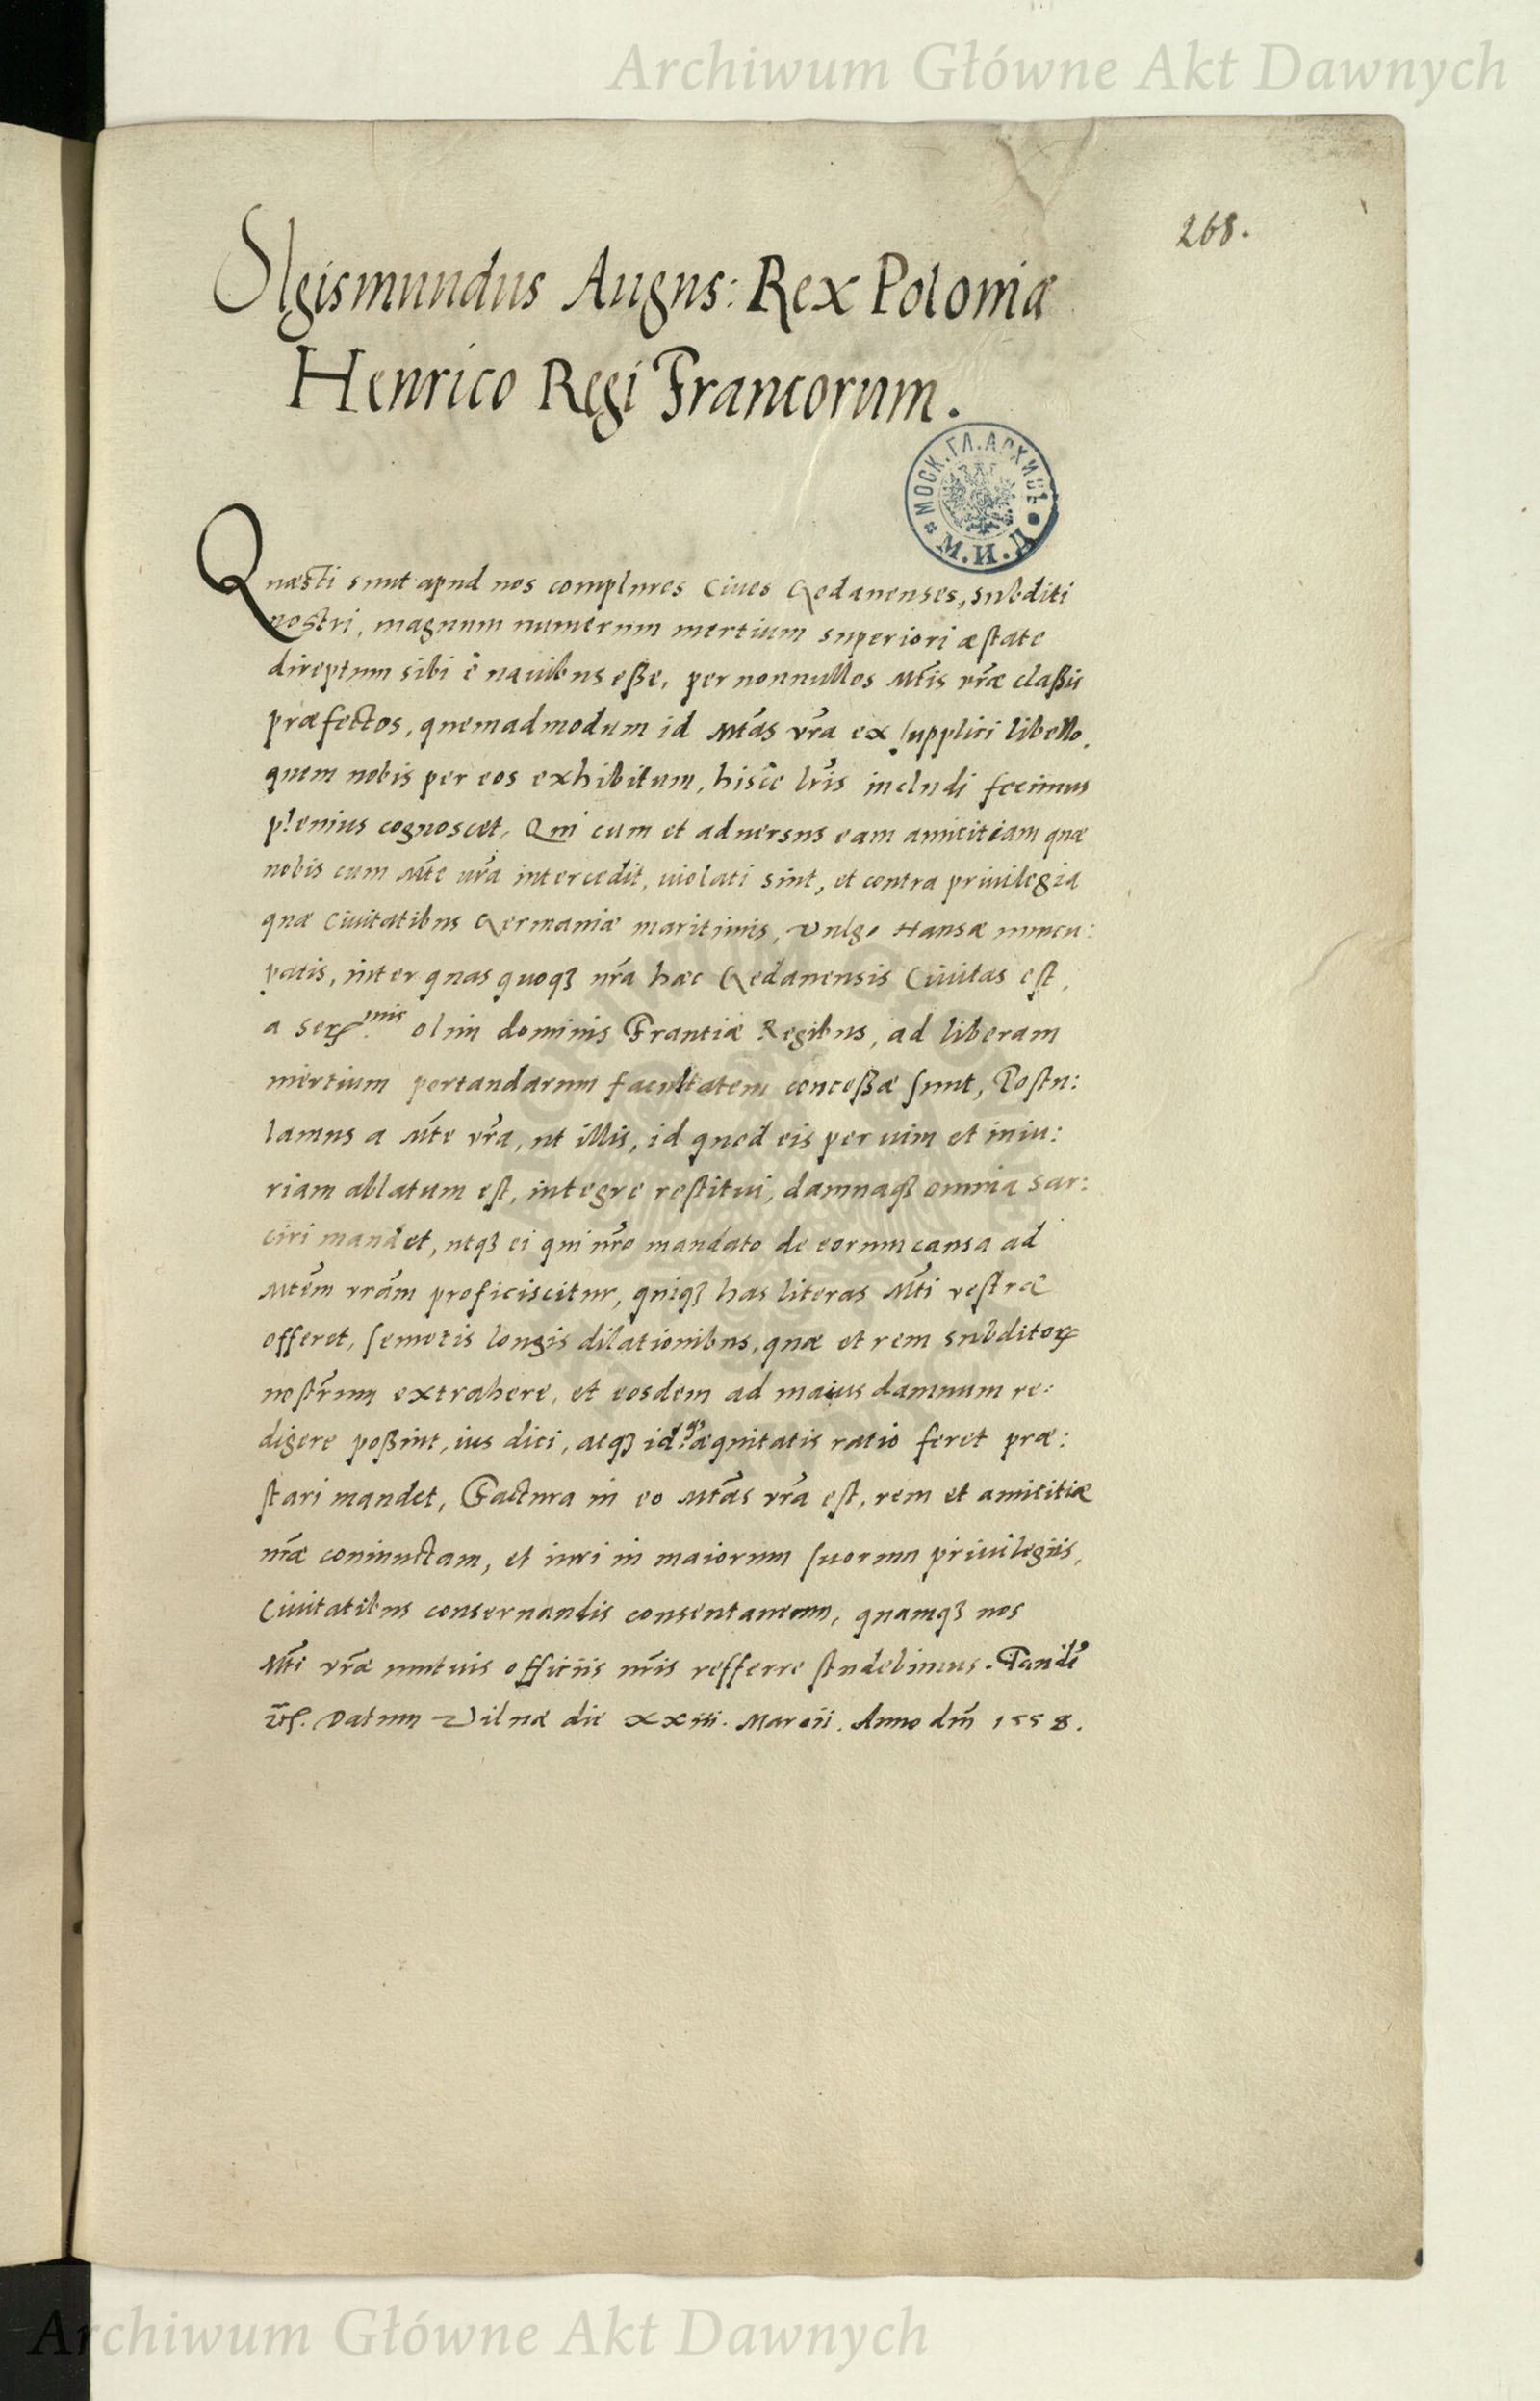 Archiwum Główne Akt Dawnych
268.
SIgismundus Augus: Rex Poloniæ
Henrico Regi Francorum.
МОСК. ГЛ. АРХИВЪ
М.И.Д.
Quæsti sunt apud nos complures Ciues Gedanenses, subditi
nostri, magnum numerum mertium superiori æstate
direptum sibi è nauibus eße, per nonnullos Mtis vræ claßis
præfectos, quemadmodum id Mtas vra ex supplici libello,
quem nobis per eos exhibitum, hisce lris includi fecimus
plenius cognoscet, Qui cum et aduersus eam amicitiam quæ
nobis cum Mte vra intercedit, uiolati sint, et contra priuilegia
quæ Ciuitatibus Germaniæ maritimis, vulgo Hansæ nuncu:
patis, inter quas quoqꝫ nra hæc Gedanensis Ciuitas est,
a Ser.mis olim dominis Frantiæ Regibus, ad liberam
mertium portandarum facultatem conceßæ sunt, Postu:
lamus a Mte vra, ut illis, id quod eis per uim et iniu:
riam ablatum est, integre restitui, damnaqꝫ omnia sar:
ciri mandet, utqꝫ ei qui nro mandato de eorum causa ad
Mtem vram proficiscitur, quiqꝫ has literas Mti vestræ
offeret, semotis longis dilationibus, quæ et rem subditoꝝ
nostrum extrahere, et eosdem ad maius damnum re:
digere poßint, ius dici, atqꝫ id qꝫ æquitatis ratio feret præ:
stari mandet, Factura in eo Mtas vra est, rem et amicitiæ
nræ coniunctam, et iuri in maiorum suorum priuilegiis,
Ciuitatibus conseruandis consentaneam, quamqꝫ nos
Mti vræ mutuis officiis nris refferre studebimus. Tandē
Datum Vilnæ die xxiii. Marcii. Anno dm̄ 1558.
Archiwum Główne Akt Dawnych